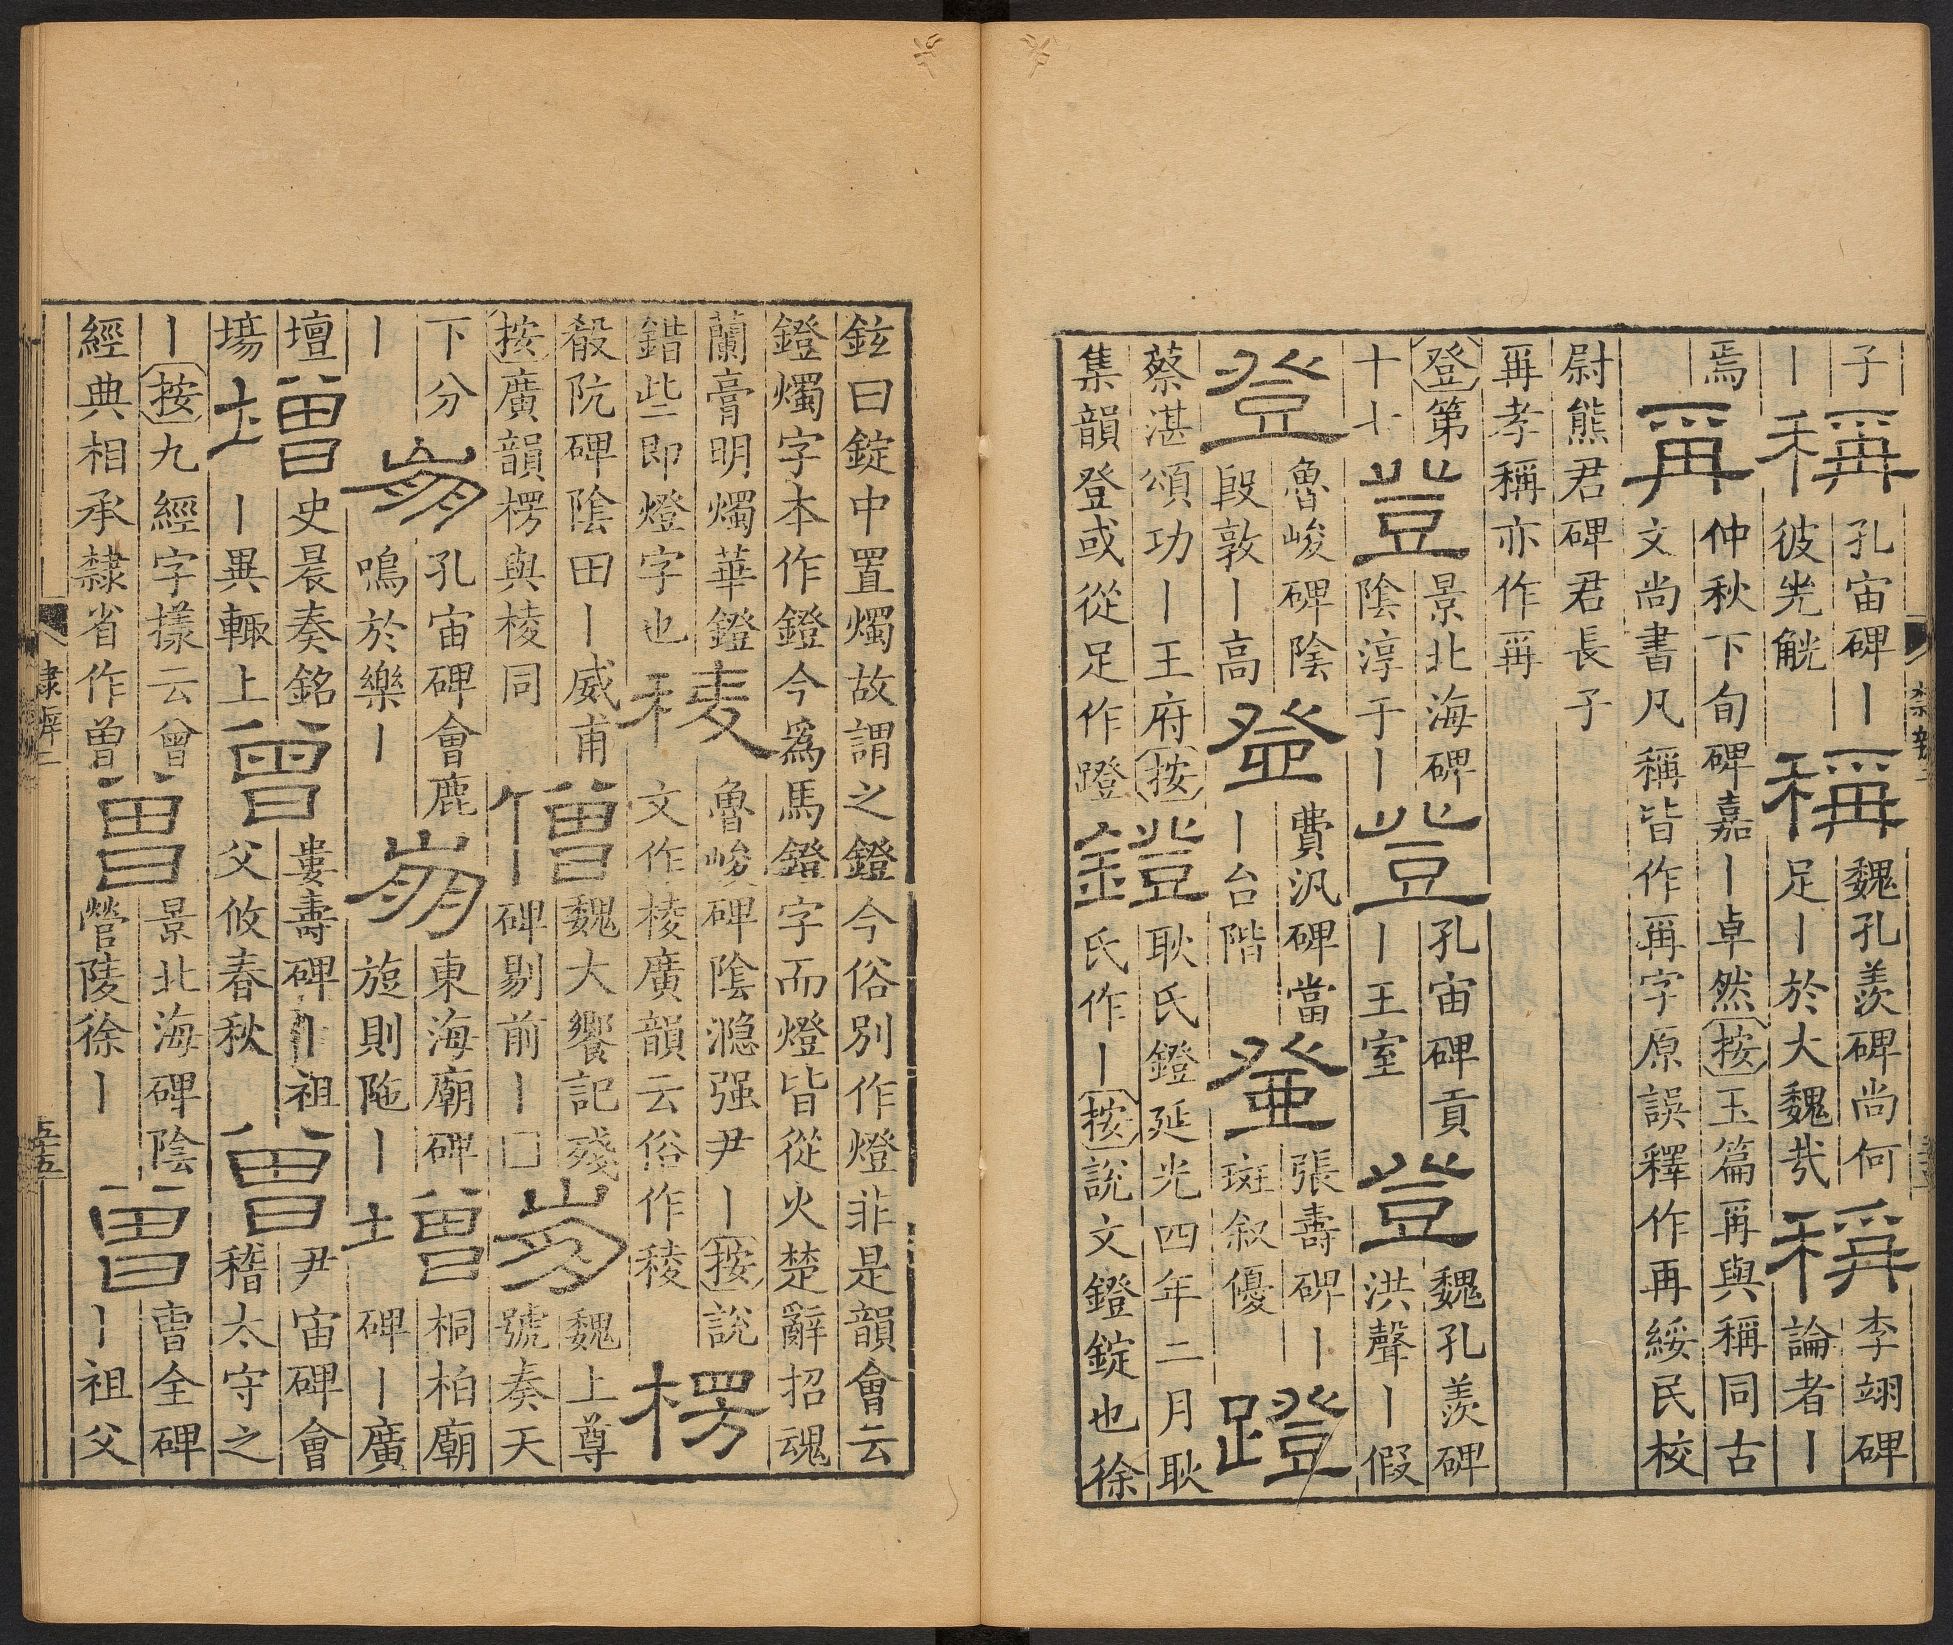 子
丨
稱
孔宙碑丨
彼兕觥
稱
魏孔羨碑尚何
足丨於大魏㢤
稱
李翊碑
論者丨
焉
爯
仲秋下旬碑嘉丨卓然按玉篇爯與稱同古
文尚書凡稱皆作爯字原誤釋作再綏民校
尉熊君碑君長子
爯孝稱亦作爯
登第
十七
豋
景北海碑
陰淳于丨
豋
孔宙碑貢
丨王室
豋
魏孔羨碑
洪聲丨假
登
魯峻碑陰
段敦丨高
登
費汎碑當
丨台階
登
張壽碑丨
斑叙優
蹬
蔡湛頌功丨王府按
集韻登或從足作蹬
鐙
耿氏鐙延光四年二月耿
氏作丨按說文鐙錠也徐
鉉曰錠中置燭故謂之鐙今俗別作燈非是韻會云
鐙燭字本作鐙今爲馬鐙字而燈皆從火楚辭招魂
蘭膏明燭華鐙
錯些即燈字也
稜
魯峻碑陰㶏强尹丨按說
文作棱廣韻云俗作稜
楞
殽阬碑陰田丨威甫
按廣韻楞與棱同
僧
魏大饗記殘
碑剔前丨□
崩
魏上尊
號奏天
下分
丨
崩
孔宙碑會鹿
鳴於樂丨
崩
東海廟碑
旋則陁丨
增
桐柏廟
碑丨廣
壇
場
增
史晨奏銘
丨異輙上
曾
婁壽碑丨祖
父攸春秋
曾
尹宙碑會
稽太守之
丨按九經字㨾云曾
經典相承隸省作曽
曾
景北海碑陰
營陵徐丨
曾
曹全碑
丨祖父
隸辨二
五十五